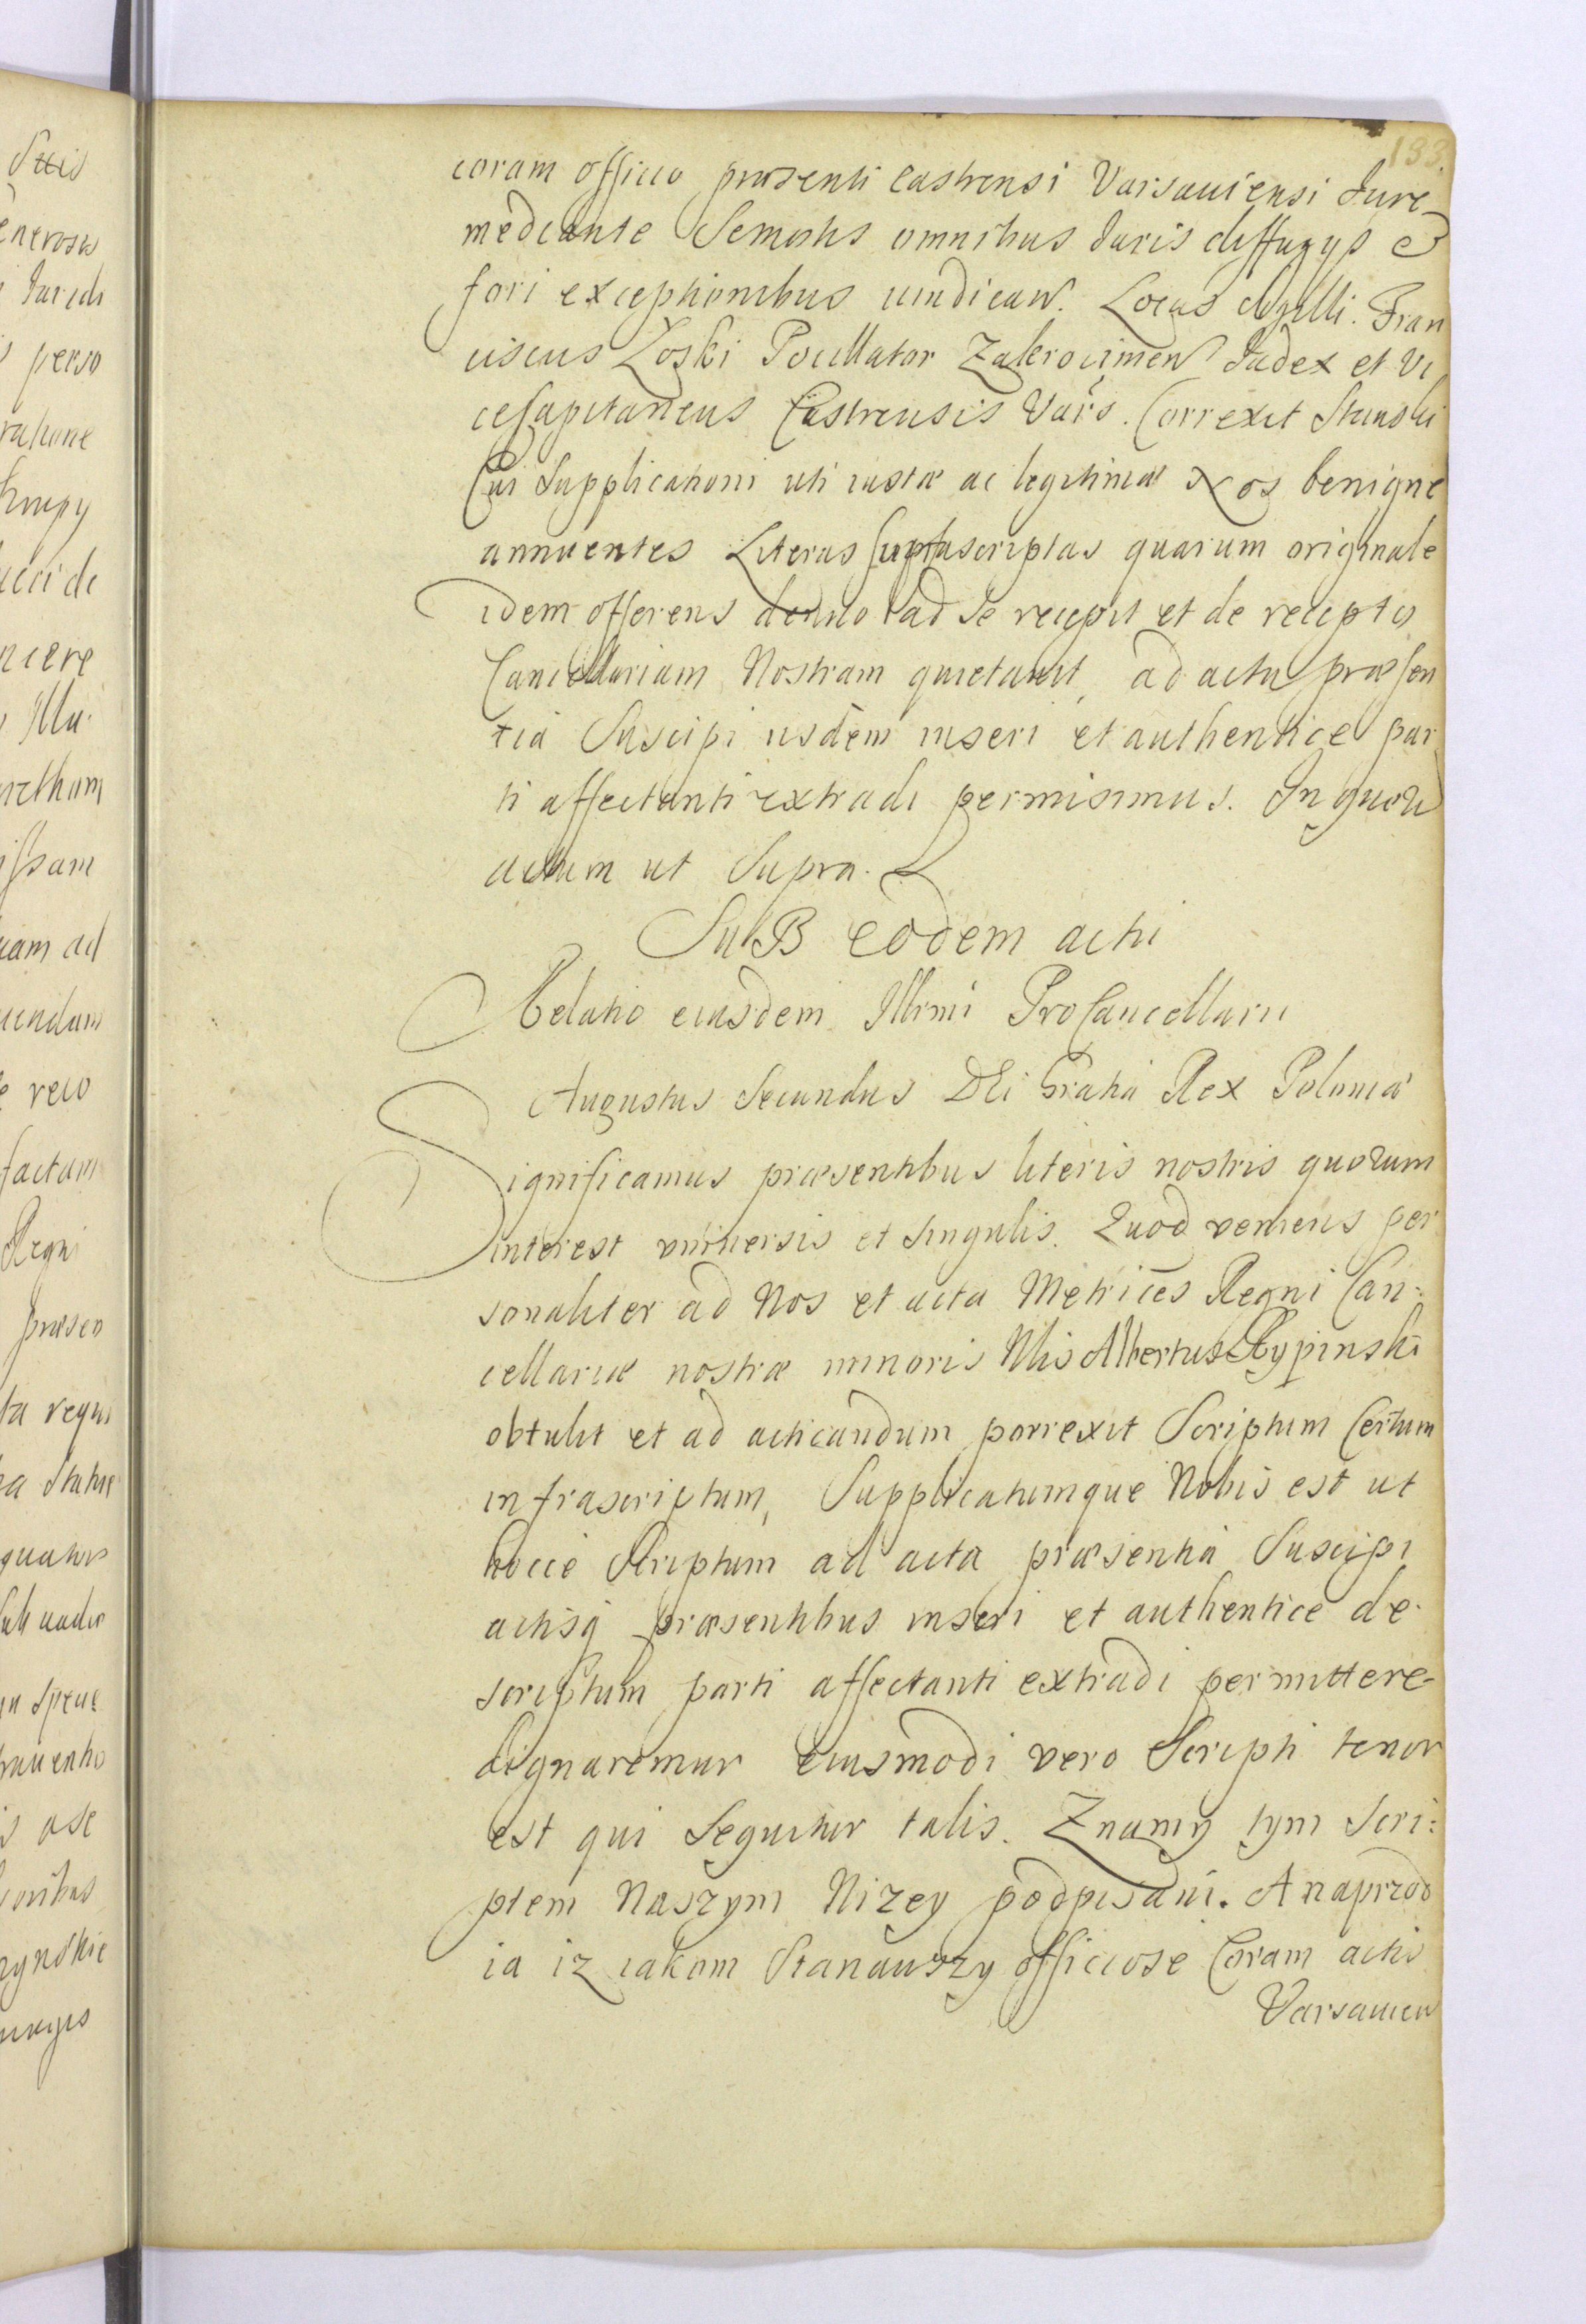 193.
coram officio præsenti Castrensi Varsauiensi Jure
mediante Semotis omnibus Juris diffugys &
fori exceptionibus uindicaw. Locus Sigilli. Fran
ciscus Zoski Pocillator Zakrocimen Judex et Vi
cesapitaneus Castrensis Vars. Correxit Stanski
Cui Supplicationi uti iustæ ac legitimæ Nos benigne
annuentes Literas suprascriptas quarum originale
idem offerens denuo ad se recepit et de recepto
Cancellariam Nostram quietauit, ad acta præsen
tia Suscipi iisdem inseri et authentice par
ti affectanti extradi permisimus. In quoru
actum ut Supra.
SuB eodem acti
Relatio eiusdem Illrmi ProCancellarii
Augustus Secundus DEi Gratia Rex Poloniæ
Significamus præsentibus literis nostris quorum
interest vniuersis et singulis. Quod veniens per
sonaliter ad Nos et acta Metrices Regni Can:
cellariæ nostræ minoris Nlis Albertus Rypinski
obtulit et ad acticandum porrexit Scriptum Certum
infrascriptum, Supplicatumque Nobis est ut
hocce Scriptum ad acta præsentia Suscipi
actisq præsentibus inseri et authentice de
scriptum parti affectanti extradi permittere
dignaremur eiusmodi vero Scripti tenor
est qui Sequitur talis. Znamy tym Scri:
ptem Naszym Nizey podpisani. A naprzod
ia iz iakom Stanawszy officiose Coram actis
Varsauien